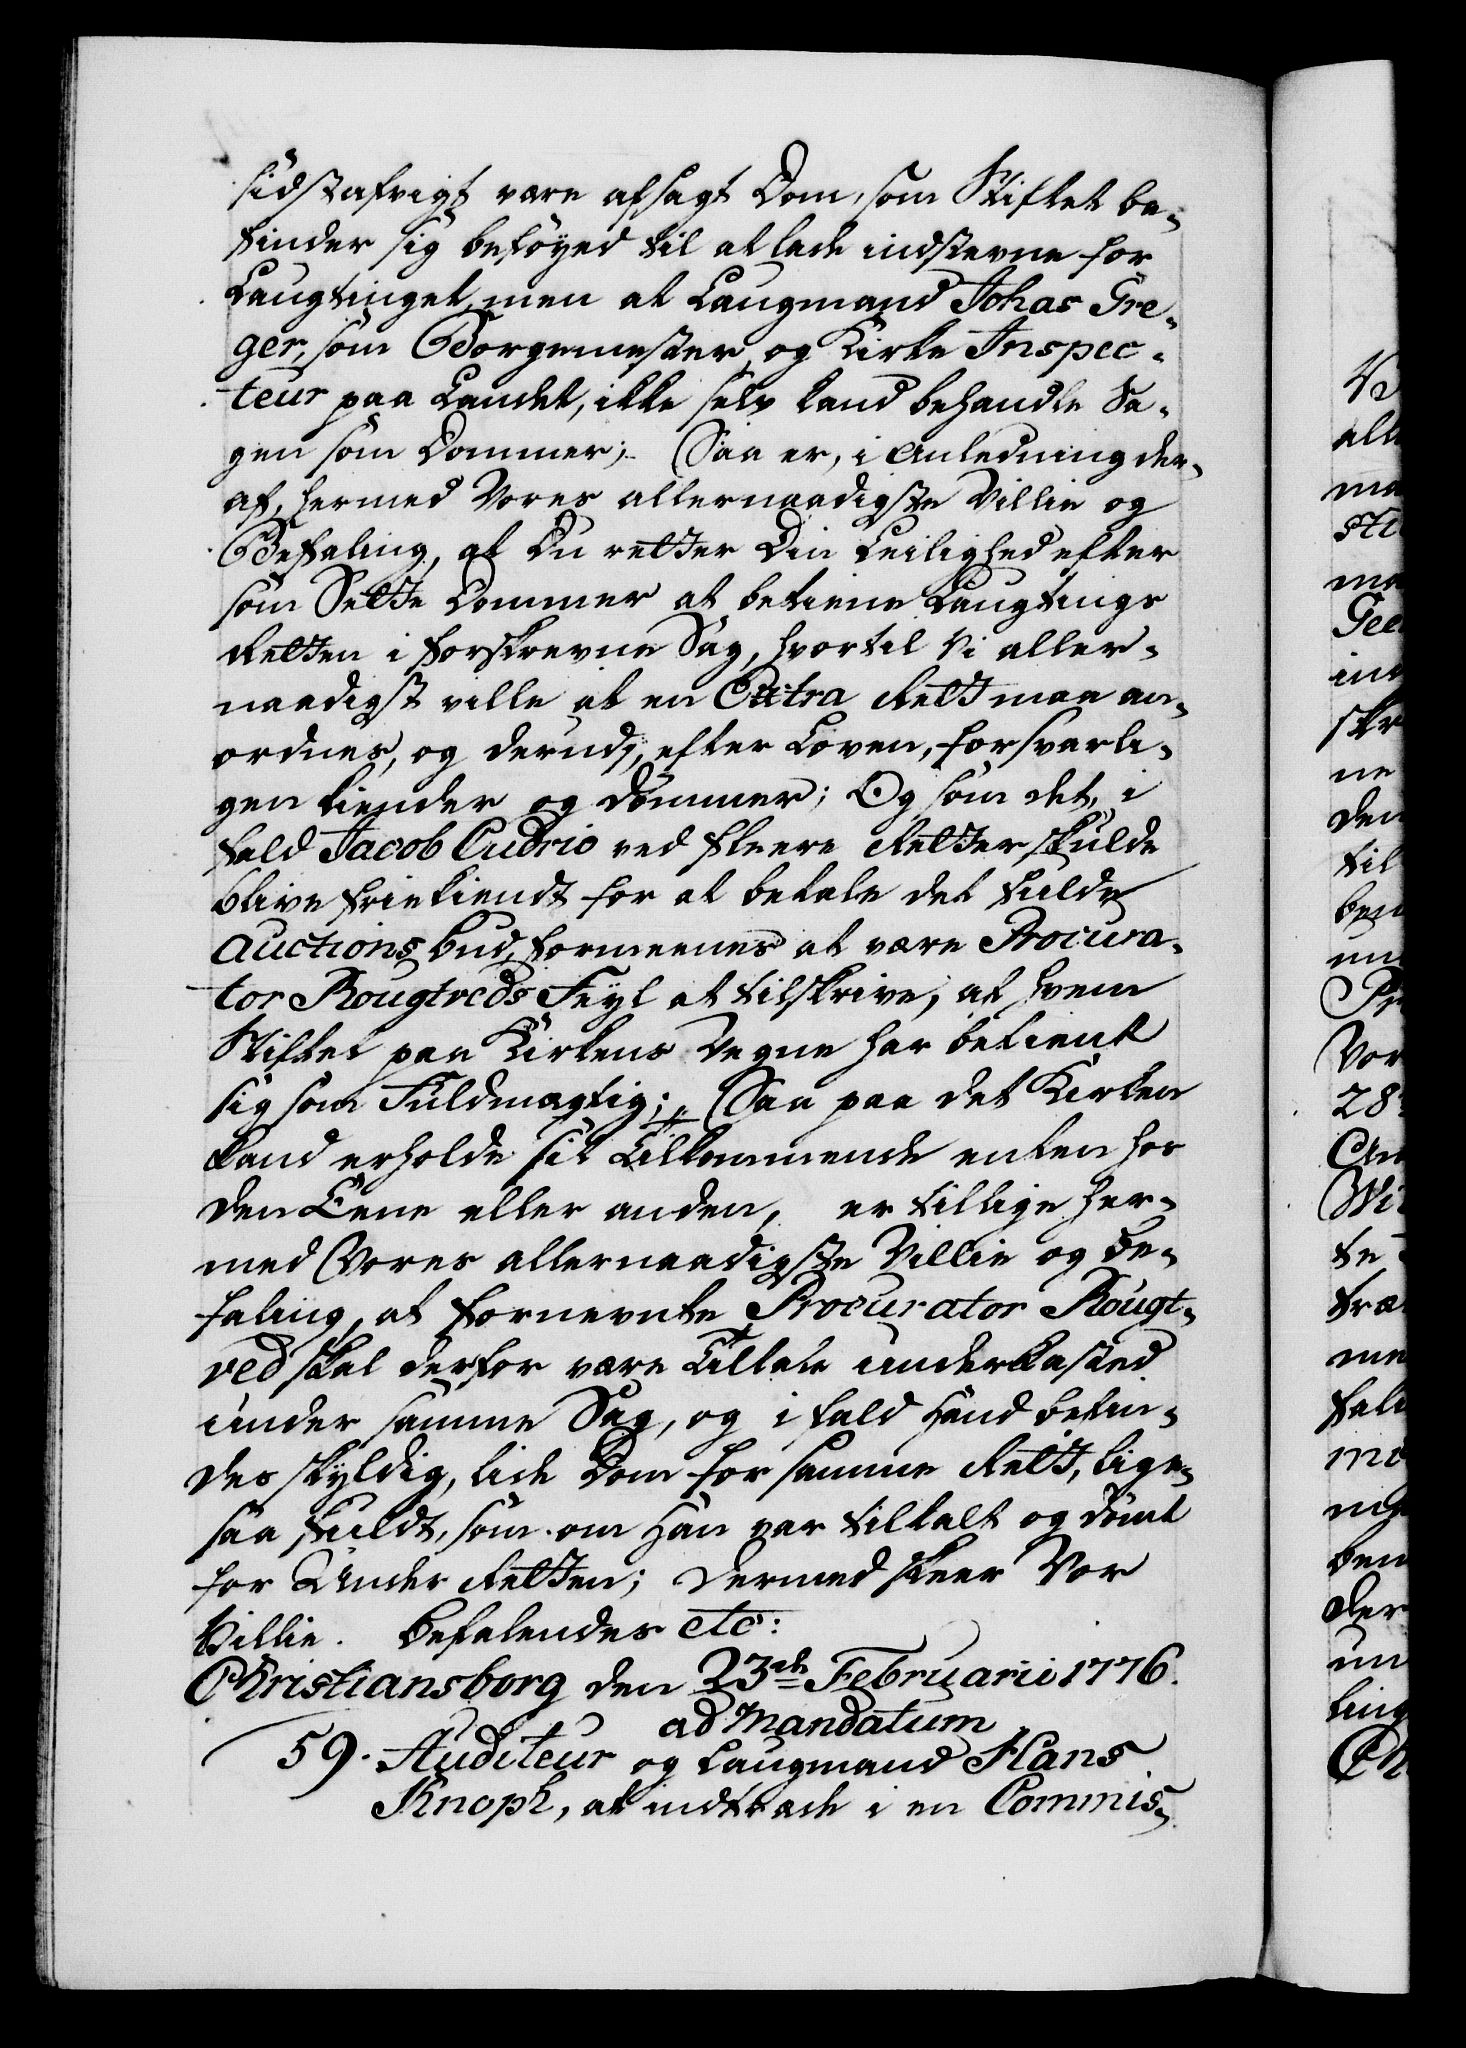 sidstafvigt være afsagt Dom, som Stiftet be-
finder sig beføyed til at lade indstevne for
Laugtinget, men at Laugmand Johas Gre-
ger, som Borgemester og Kirke Inspec-
teur paa Landet, ikke selv kand behandle Sa-
gen som Dommer; Saa er, i Anledning der-
af, hermed Vores allernaadigste Villie og
Befaling, at Du retter Din Leilighed efter
som Sette Dommer at betiene Laugtings
Retten i forskrevne Sag, hvortil Vi aller-
naadigst ville at en Extra Rett maa an-
ordnes, og derudj, efter Loven, forsvarli-
gen kiender og dømmer; Og som det, i
fald Jacob Cudrio ved fleere Retter skulde
blive friekiendt for at betale det fulde
Auctions bud, formeenes at være Procura-
tor Rougtveds Feyl at tilskrive, af hvem
Stiftet paa Kirkens Vegne har betient
sig som Fuldmægtig; Saa paa det Kirken
kand erholde sit Tilkommende enten hos
den Eene eller anden, er tillige her-
med Vores allernaadigste Villie og Be-
faling, at fornevnte Procurator Rougt-
ved skal derfor være Tiltale underkasted
under samme Sag, og i fald Hand befin-
des skyldig, lide Dom for samme Rett, lige-
saa fuldt, som om Han var tiltalt og dømt
for Under Retten; Dermed skeer Vor
Villie. Befalendes etc:
Christiansborg den 23de Februarii 1776.
ad Mandatum
59. Auditeur og Laugmand Hans
Knoph, at indtræde i en Commis-